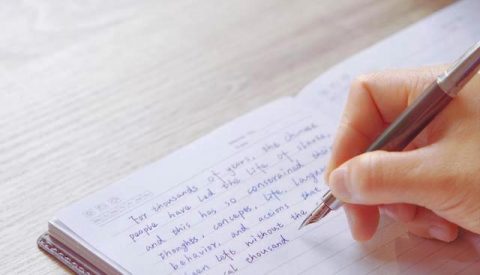 For thousands of years, the Chinese
people have led the life of sharks,
and this has so constrained their
thoughts, concepts, life, language
behavior, and actions that
even left without the
al thousand